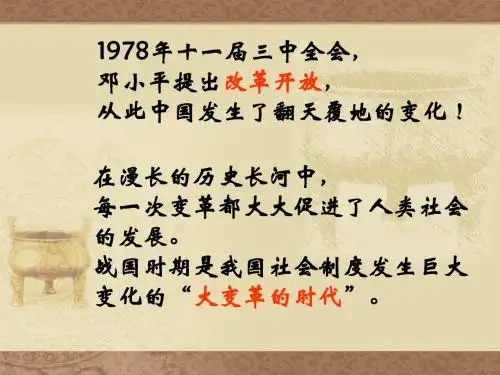 1978年十一届三中全会，
邓小平提出改革开放，
从此中国发生了翻天覆地的变化！
在漫长的历史长河中，
每一次变革都大大促进了人类社会
的发展。
战国时期是我国社会制度发生巨大
变化的“大变革的时代”。